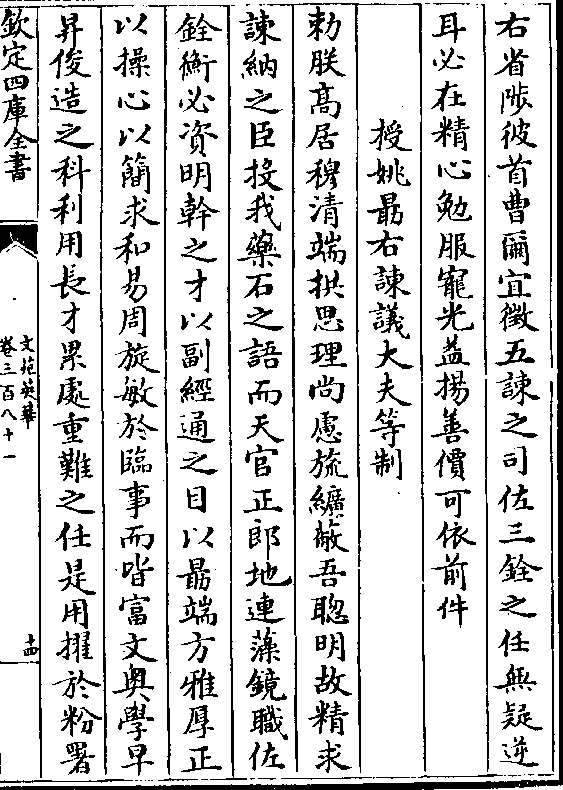 右省陟彼首曹爾宜徵五諫之司佐三銓之任無疑逆
耳必在精心勉服寵光益揚善價可依前件
授姚勗右諫議大夫等制
勅朕髙居穆清端拱思理尚慮旒纊蔽吾聰明故精求
諫納之臣投我藥石之語而天官正郎地連藻鏡職佐
銓衡必資明幹之才以副經通之目以勗端方雅厚正
以操心以簡求和易周旋敏於臨事而皆富文奥學早
昇俊造之科利用長才累處重難之任是用擢於粉署
欽定四庫全書
文苑英華
卷三百八十一
十四